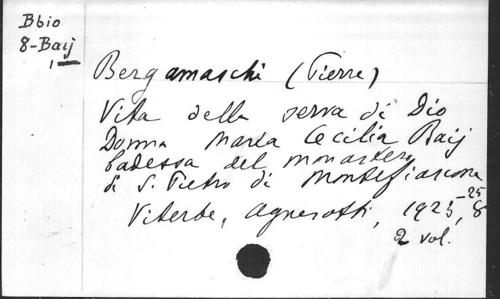 Bbio
8-Baij
1
Bergamaschi (Pierre)
Vita della serva di Dio
Donna Maria Cecilia Baij
badessa del monastero
di S. Pietro di Montefiascone
Viterbe, Agnesotti, 1923-25, 8
2 vol.